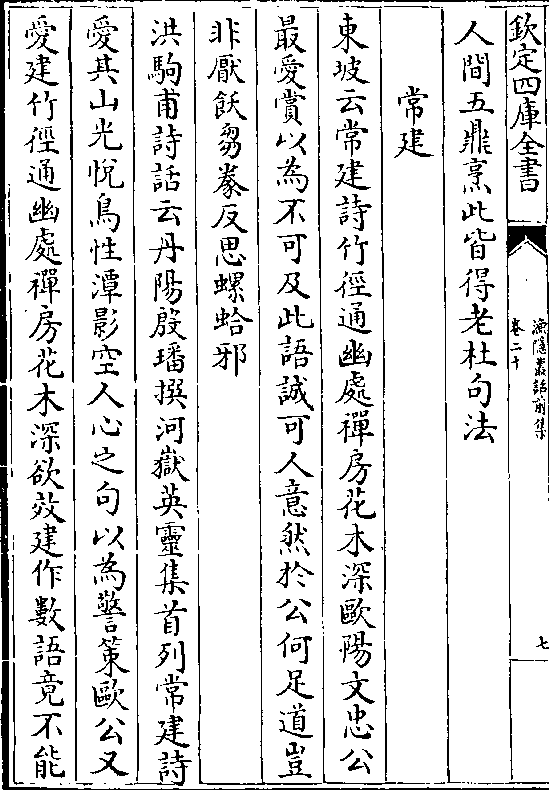 欽定四庫全書
漁隱叢話前集
卷二十
七
人間五鼎烹此皆得老杜句法
常建
東坡云常建詩竹徑通幽處禪房花木深歐陽文忠公
最愛賞以為不可及此語誠可人意然於公何足道豈
非厭飫芻豢反思螺蛤邪
洪駒甫詩話云丹陽殷璠撰河嶽英靈集首列常建詩
愛其山光悅鳥性潭影空人心之句以為警策歐公又
愛建竹徑通幽處禪房花木深欲效建作數語竟不能